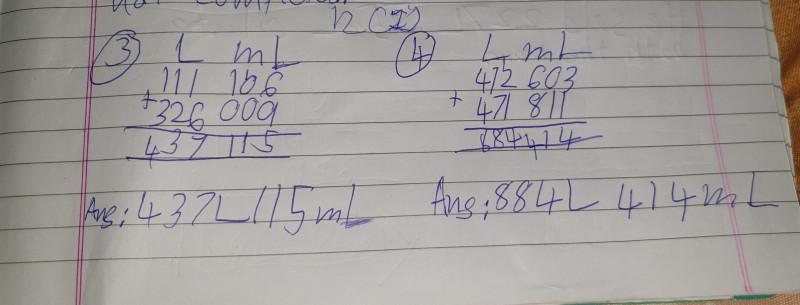 12(I)
③ L mL
111 106
+ 326 009
437 115
Ans: 437L 115mL
④ L mL
412 603
+ 471 811
884 414
Ans: 884L 414mL